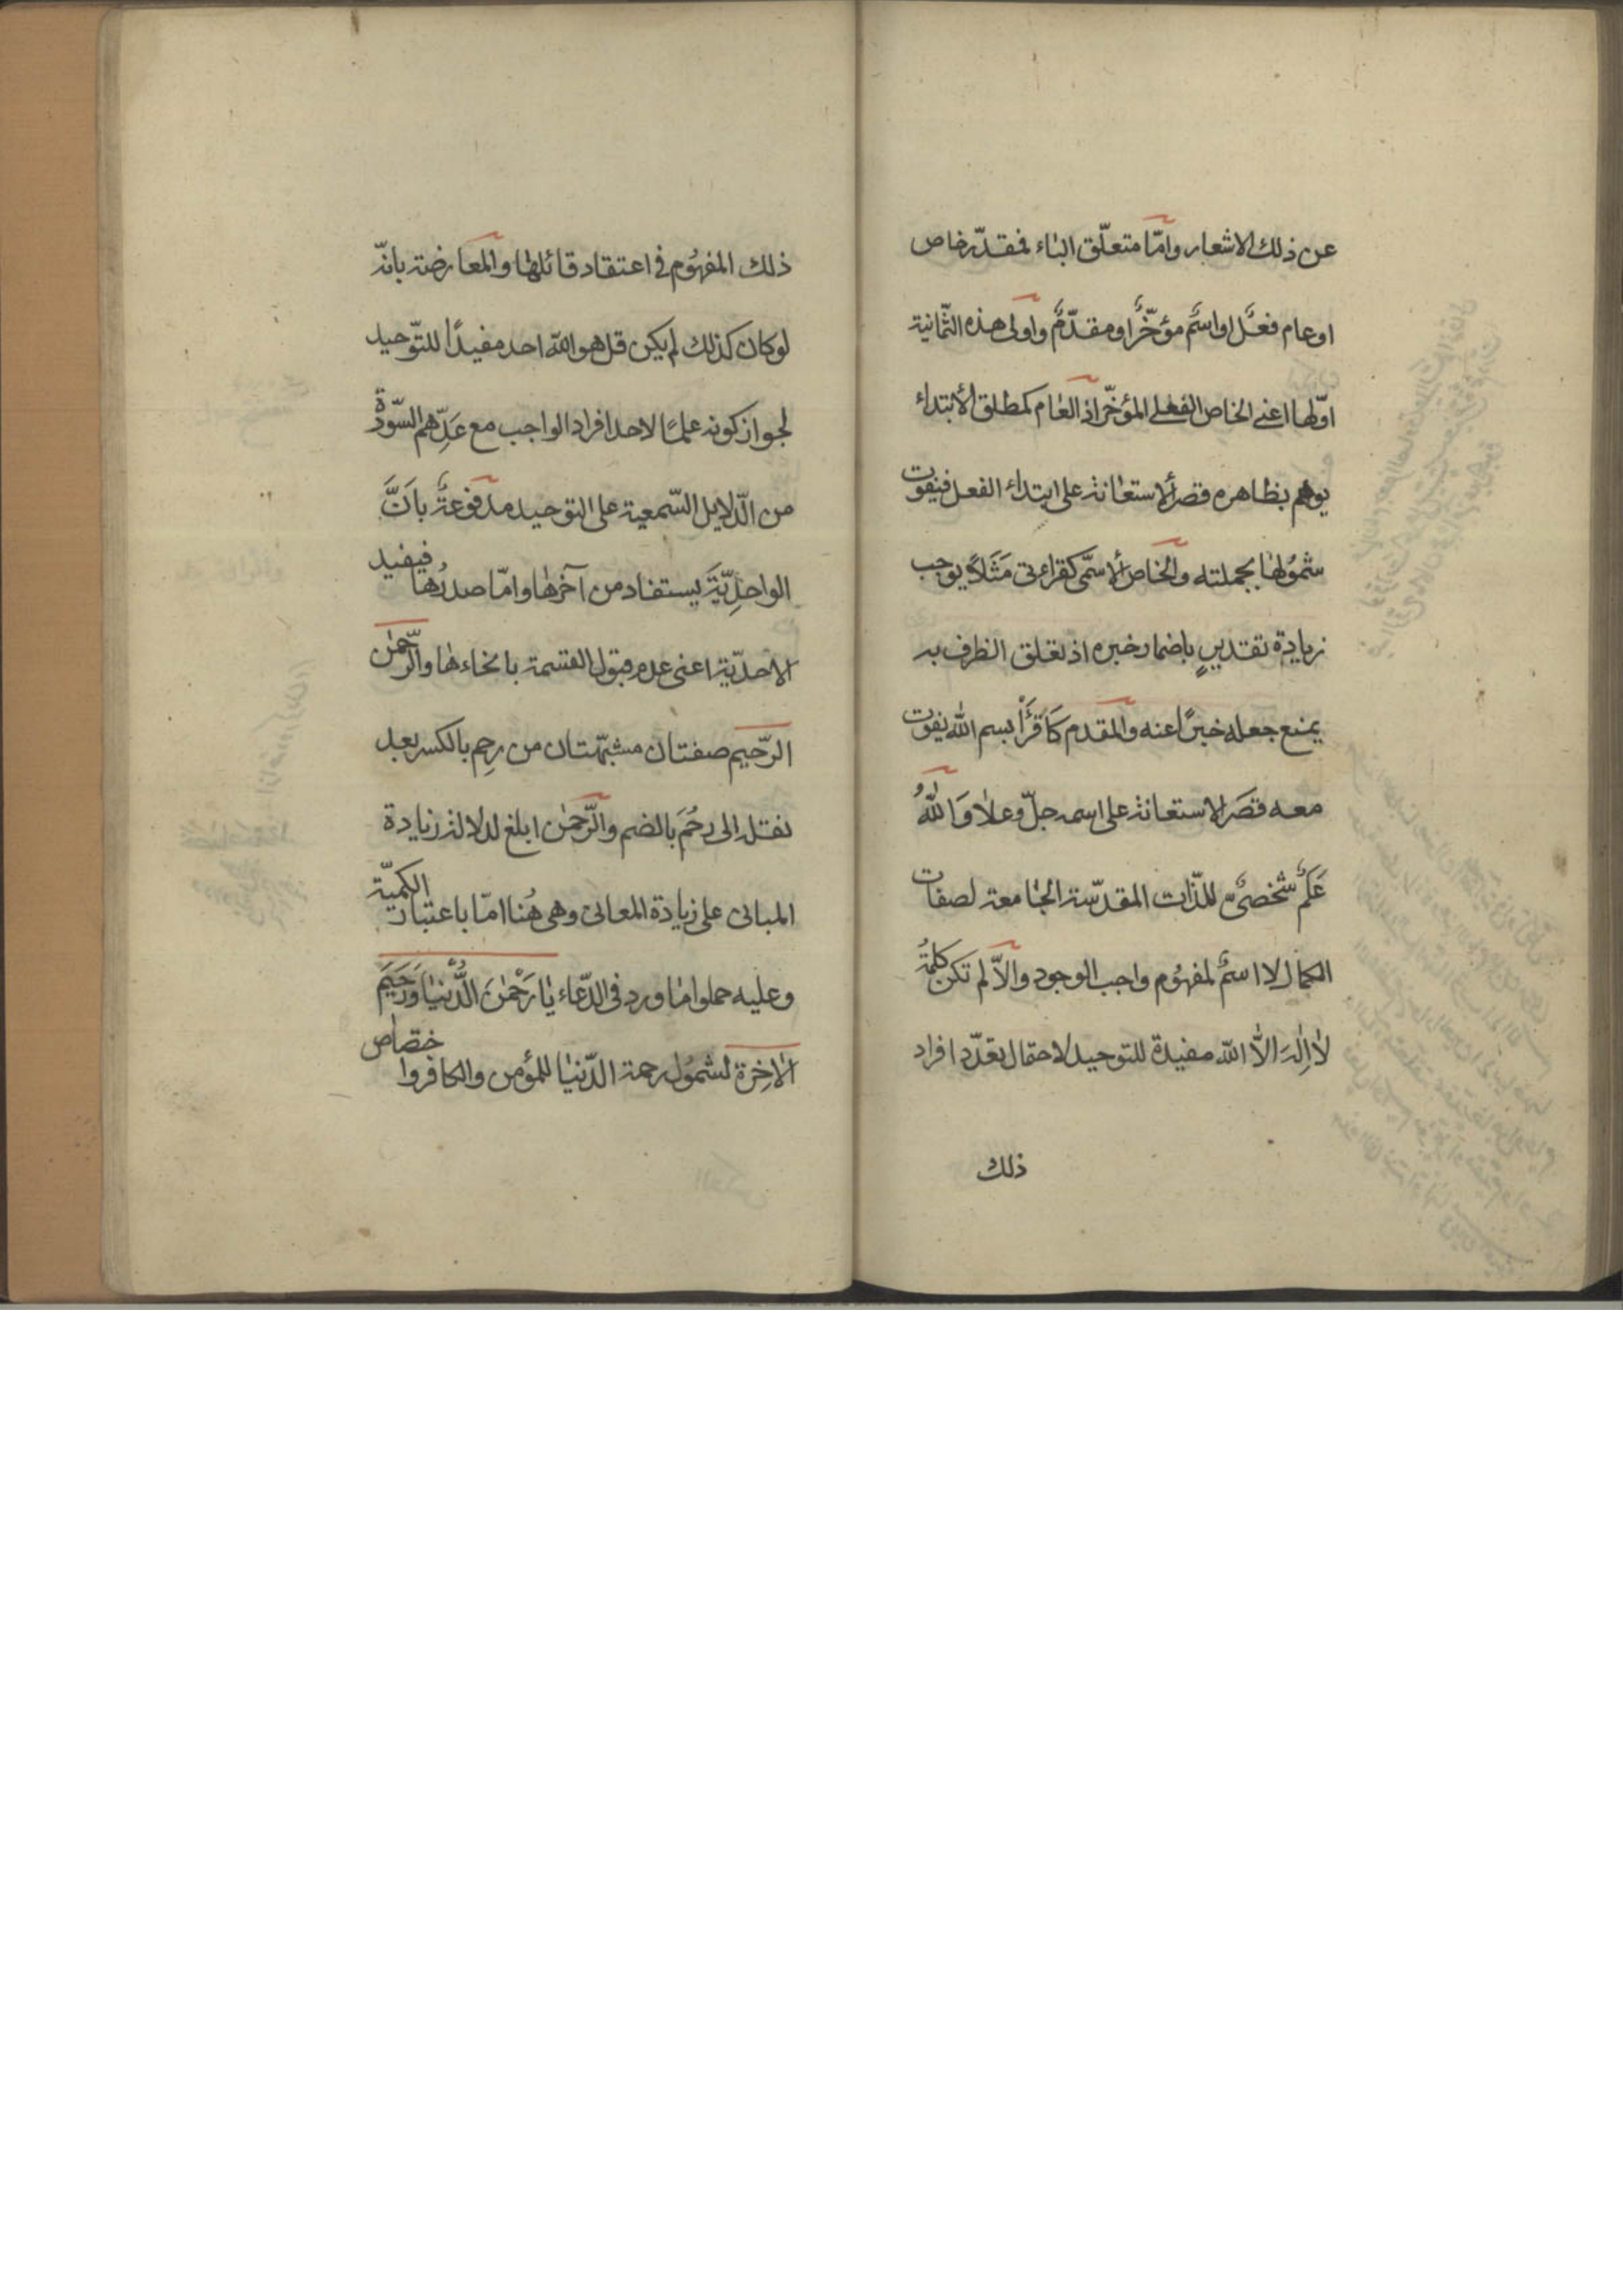 عن ذلك الاشعار وامّا متعلّق الباء فمقدّر خاص
او عام فعلٌ او اسمٌ مؤخّرٌ او مقدّمٌ واولى هذه الثّمانية
اوّلها اعنى الخاص الفعلى المؤخّر اذ العام كمطلق الابتداء
يوهم بظاهره قصر الاستعانة على ابتداء الفعل فيفوت
شمولها بجملته والخاص الاسمّى كقراءتى مَثَلاً يوجب
زيادة تقديرٍ باضمار خبره اذ تعلق الظرف به
يمنع جعله خبرًا عنه والمقدم كَاَقْرَأُ بسم الله يفوت
معه قصَر الاستعانة على اسمه جلّ وعلا وَاللّٰهُ
عَلَمٌ شخصىٌ للذّات المقدّسة الجامعة لصفات
الكمال لا اسمٌ لمفهُوم واجب الوجود والاّ لم تكن كلمةُ
لا اِلٰهَ الاَّ الله مفيدة للتوحيد لاحتمال تعدّد افراد
ذلك
ذلك المفهُوم فى اعتقاد قائلها والمعارضة بانّه
لو كان كذلك لم يكن قل هو الله احد مفيدًا للتّوحيد
لجواز كونه علمًا لاحد افراد الواجب مع عَدِّهم السّورة
من الدّلايل السّمعية على التوحيد مدفوعةٌ بِاَنَّ
الواحدِيّةَ يستفاد من آخرها وامّا صدرُها فيفيد
الاحديّة اعنى عدم قبول القسمة بانحاءها والرّحمٰن
الرّحيم صفتان مشبّهتان من رحِم بالكسر بعد
نقله الى رحُمَ بالضم والرّحمٰن ابلغ لدلالة زيادة
المبانى على زيادة المعانى وهى هُنا امّا باعتبار الكميّة
وعليه حملوا ما ورد فى الدّعاء يا رَحْمٰنَ الدُّنْيَا وَرَحيمَ
الاخِرَة لشمُول رحمة الدّنيا للمؤمن والكافر واختصاص